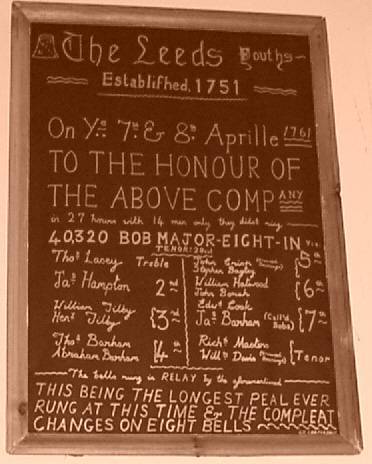 The Leeds Youths
Establifhed, 1751
On Ye 7th & 8th Aprille 1761
TO THE HONOUR OF
THE ABOVE COMPANY
in 27 hours with 14 men only they didst ring
40,320 BOB MAJOR-EIGHT-IN Viz.
TENOR 20 cwt
Thos Lacey Treble
Jas Hampton 2nd
William Tilby
Henr Tilby 3rd
Thos Barham
Abraham Barham 4th
John
Stephen Bagley 5th
William
John 6th
Edwd Cook
Jas Barham (Call'd Bobs) 7th
Richd Masters
Willm Davis Tenor
The bells rung in RELAY by the aforementioned
THIS BEING THE LONGEST PEAL EVER
RUNG AT THIS TIME & THE COMPLEAT
CHANGES ON EIGHT BELLS